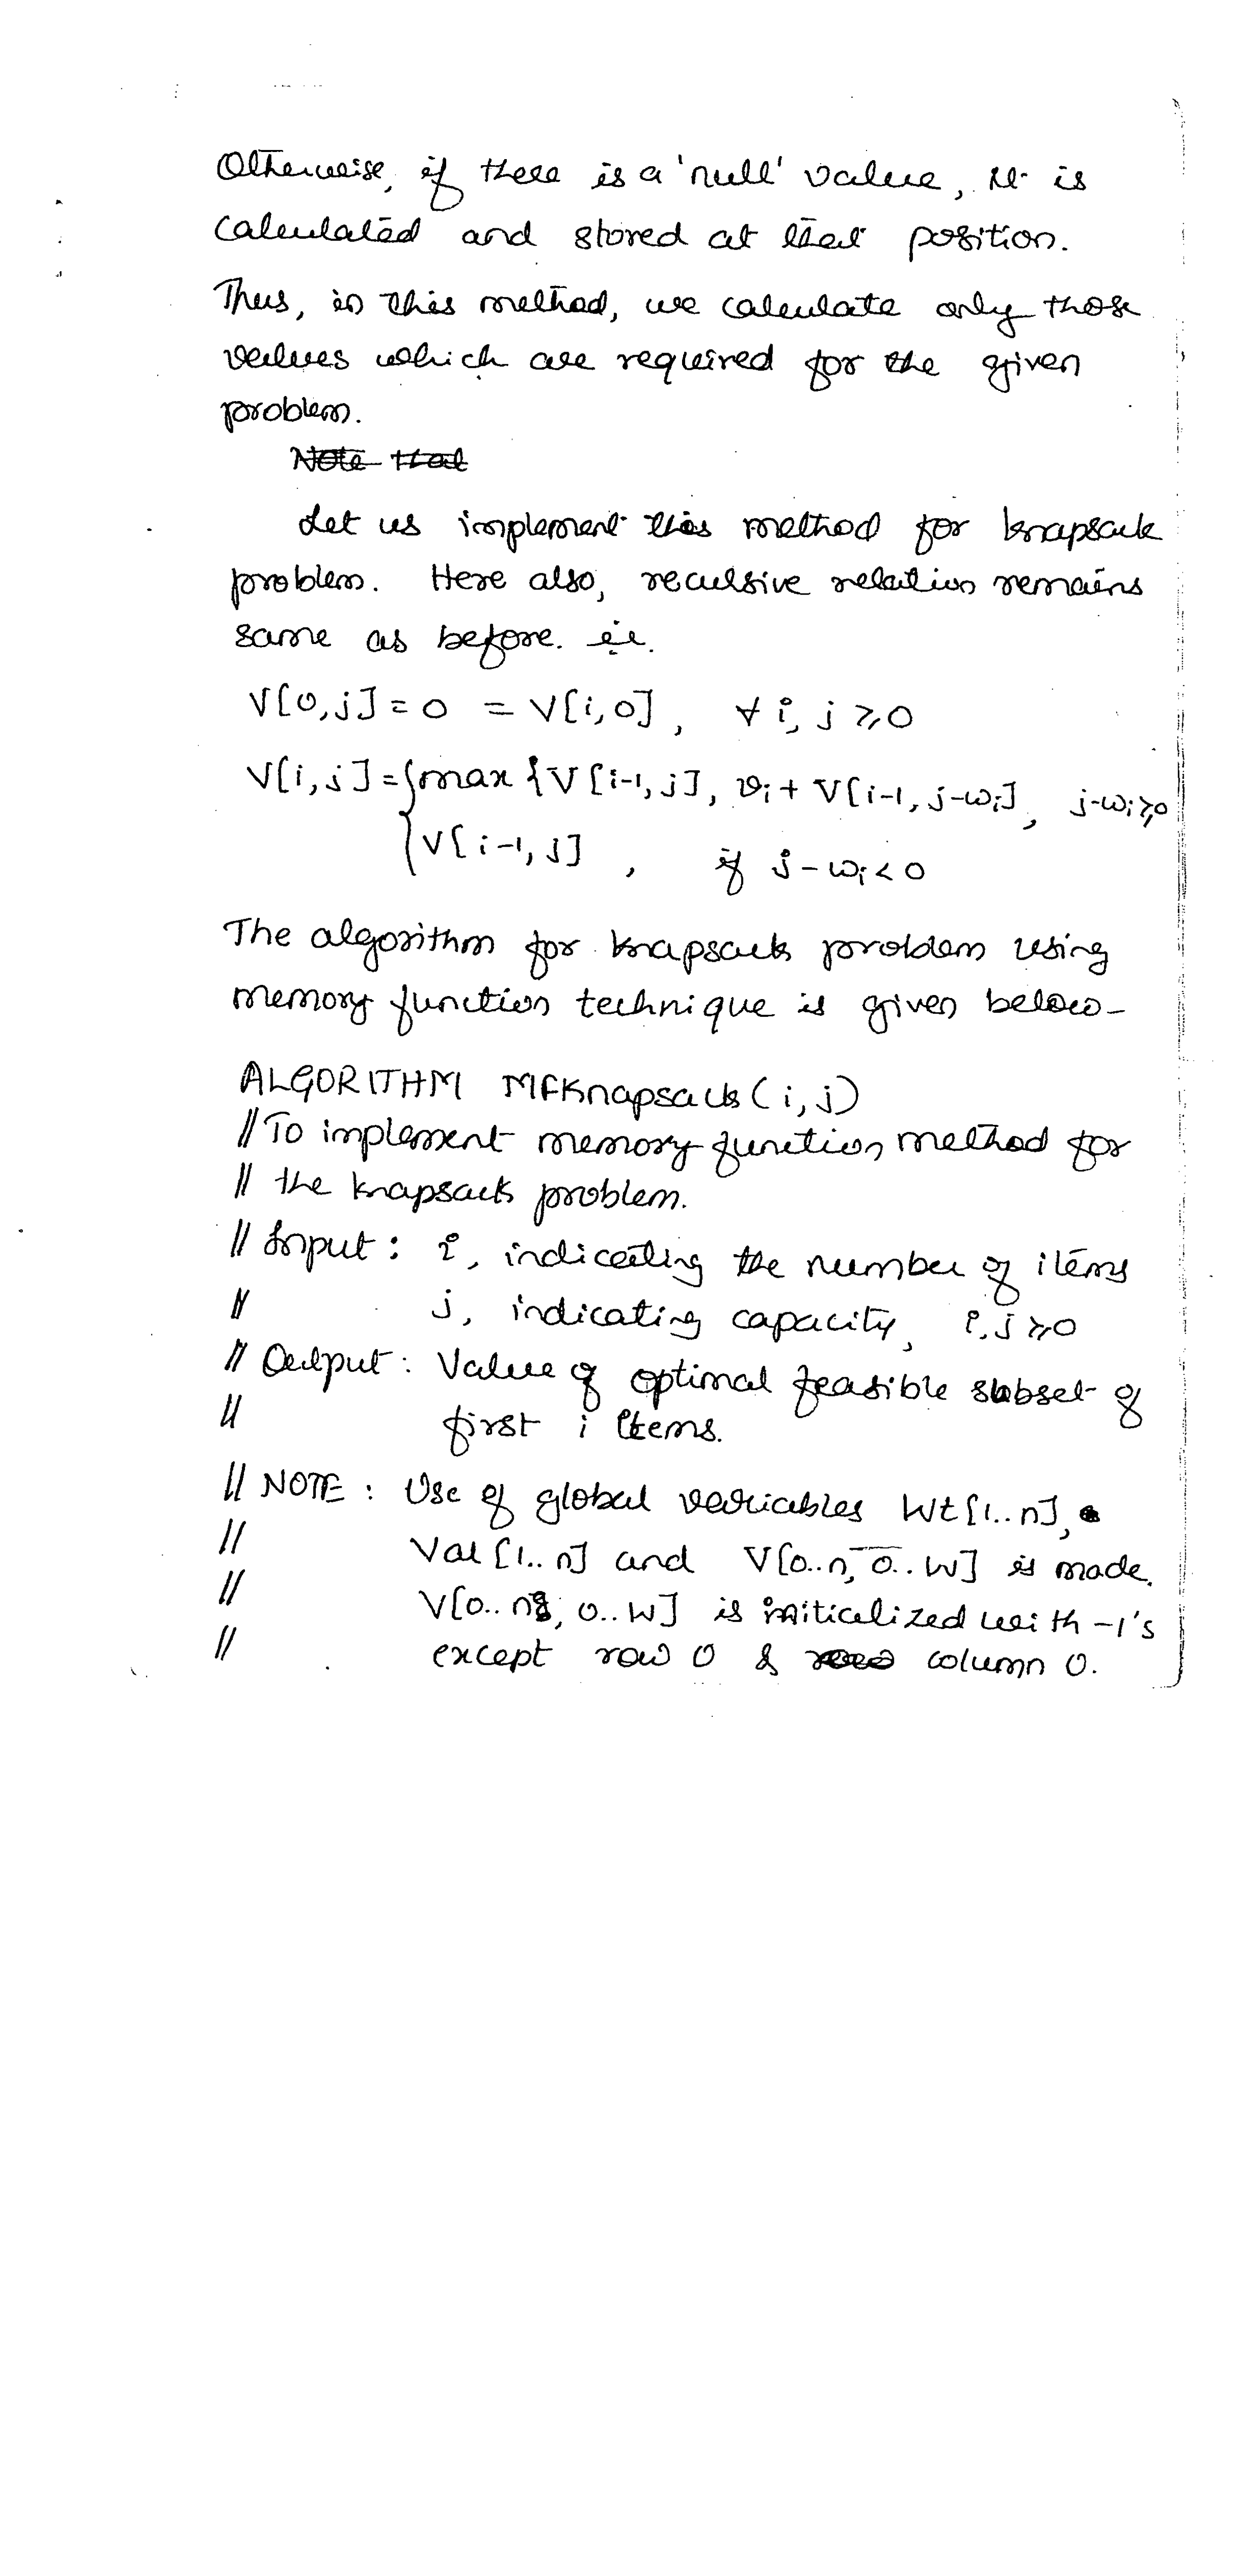 Otherwise, if there is a 'null' value, it is
calculated and stored at that position.
Thus, in this method, we calculate only those
values which are required for the given
problem.
Note that
Let us implement this method for knapsack
problem. Here also, recursive relation remains
same as before. ie.
V[0,j] = 0 = V[i,0], ∀ i, j ≥ 0
V[i,j] = { max {V[i-1,j], vi + V[i-1, j-wi], j-wi ≥ 0
{ V[i-1, j] , if j-wi < 0
The algorithm for knapsack problem using
memory function technique is given below-
ALGORITHM MFKnapsack(i,j)
// To implement memory function method for
// the knapsack problem.
// Input: i, indicating the number of items
// j, indicating capacity, i,j ≥ 0
// Output: Value of optimal feasible subset of
// first i items.
// NOTE: Use of global variables Wt[1..n],
// Val[1..n] and V[0..n, 0..W] is made.
// V[0..n, 0..W] is initialized with -1's
// except row 0 & column 0.